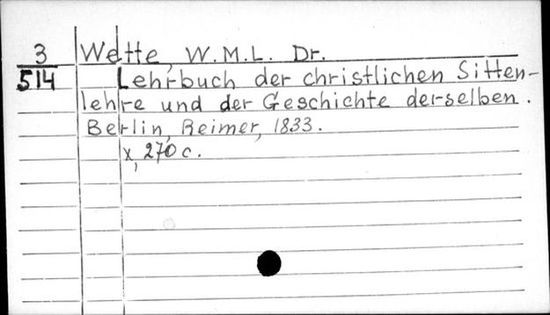 3 Wette, W.M.L. Dr.
514 Lehrbuch der christlichen Sitten-
lehre und der Geschichte derselben.
Berlin, Reimer, 1833.
X, 270 c.